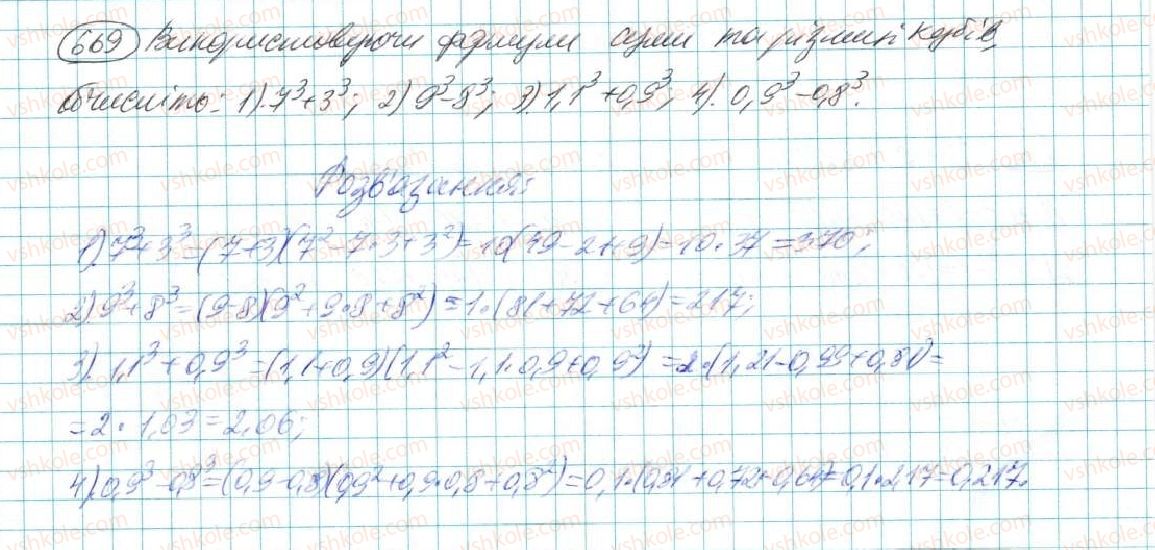 669 Використовуючи формули суми та різниці кубів,
обчисліть: 1). 7³+3³; 2) 9³-8³; 3). 1,1³+0,9³; 4). 0,9³-0,8³.
Розв'язання:
1) 7³+3³=(7+3)(7²-7·3+3²)=10(49-21+9)=10·37=370;
2). 9³+8³=(9-8)(9²+9·8+8²)=1·(81+72+64)=217;
3). 1,1³+0,9³=(1,1+0,9)(1,1²-1,1·0,9+0,9²)=2·(1,21-0,99+0,81)=
=2·1,03=2,06;
4) 0,9³-0,8³=(0,9-0,8)(0,9²+0,9·0,8+0,8²)=0,1·(0,81+0,72+0,64)=0,1·2,17=0,217.
vshkole.com